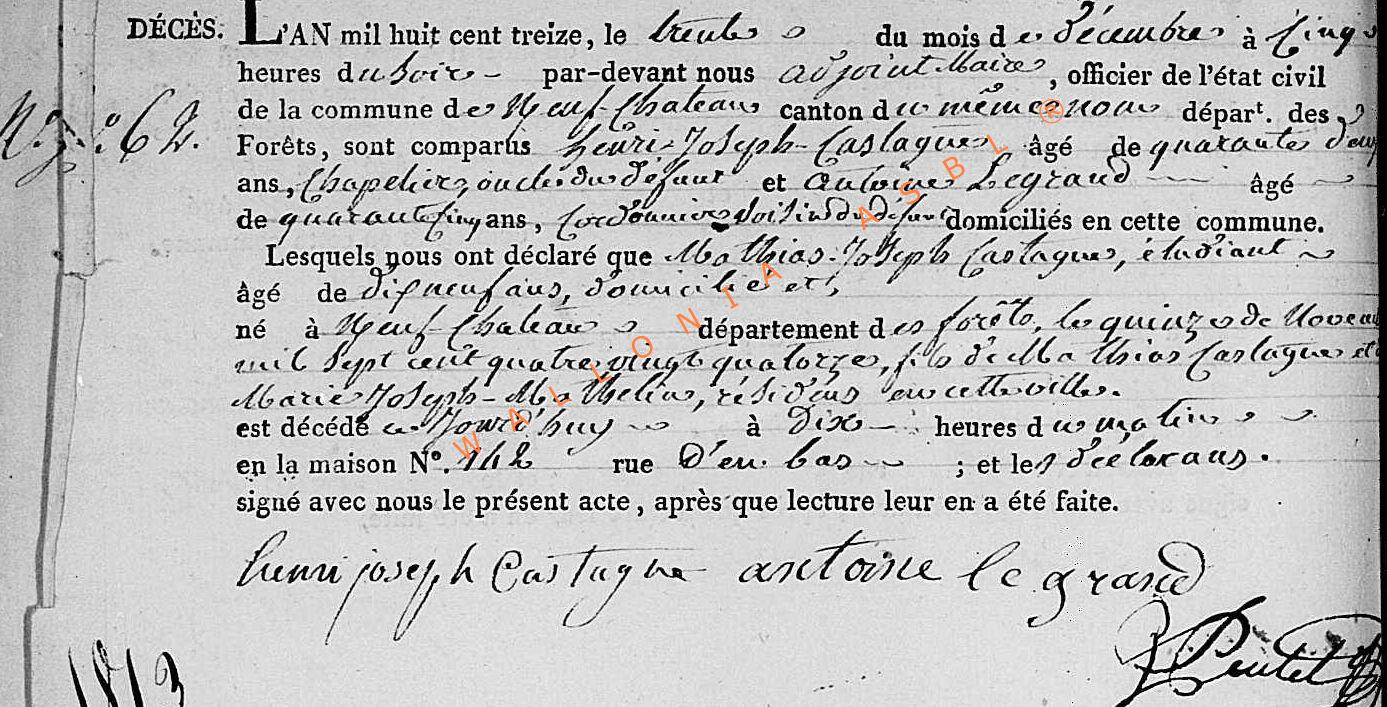 DÉCÈS. L'AN mil huit cent treize, le trente du mois de décembre à Cinq
heures du Soir par-devant nous adjoint Maire, officier de l'état civil
de la commune de Neuf-Chateau canton du même nom départ. des
N.º 62.
Forêts, sont comparus henri-Joseph-Castagne âgé de quarante deux
ans, Chapelier, oncle du défunt et Antoine Legrand âgé
de quarante cinq ans, Cordonnier Voisin du défunt domiciliés en cette commune.
Lesquels nous ont déclaré que Mathias-Joseph Castagne, étudiant
âgé de dixneuf ans, domicilié et,
né à Neuf-Chateau département des forêts, le quinze de Novem
mil Sept cent quatre vingt quatorze, fils de Mathias Castagne et
Marie Joseph-Mathelin, résidens en cette ville.
est décédé aujourd'huy à Dix heures du matin
en la maison Nº. 142 rue D'en bas ; et les déclarans.
signé avec nous le présent acte, après que lecture leur en a été faite.
henri joseph Castagne antoine legrand
1813
WALLONIA ASBL ®